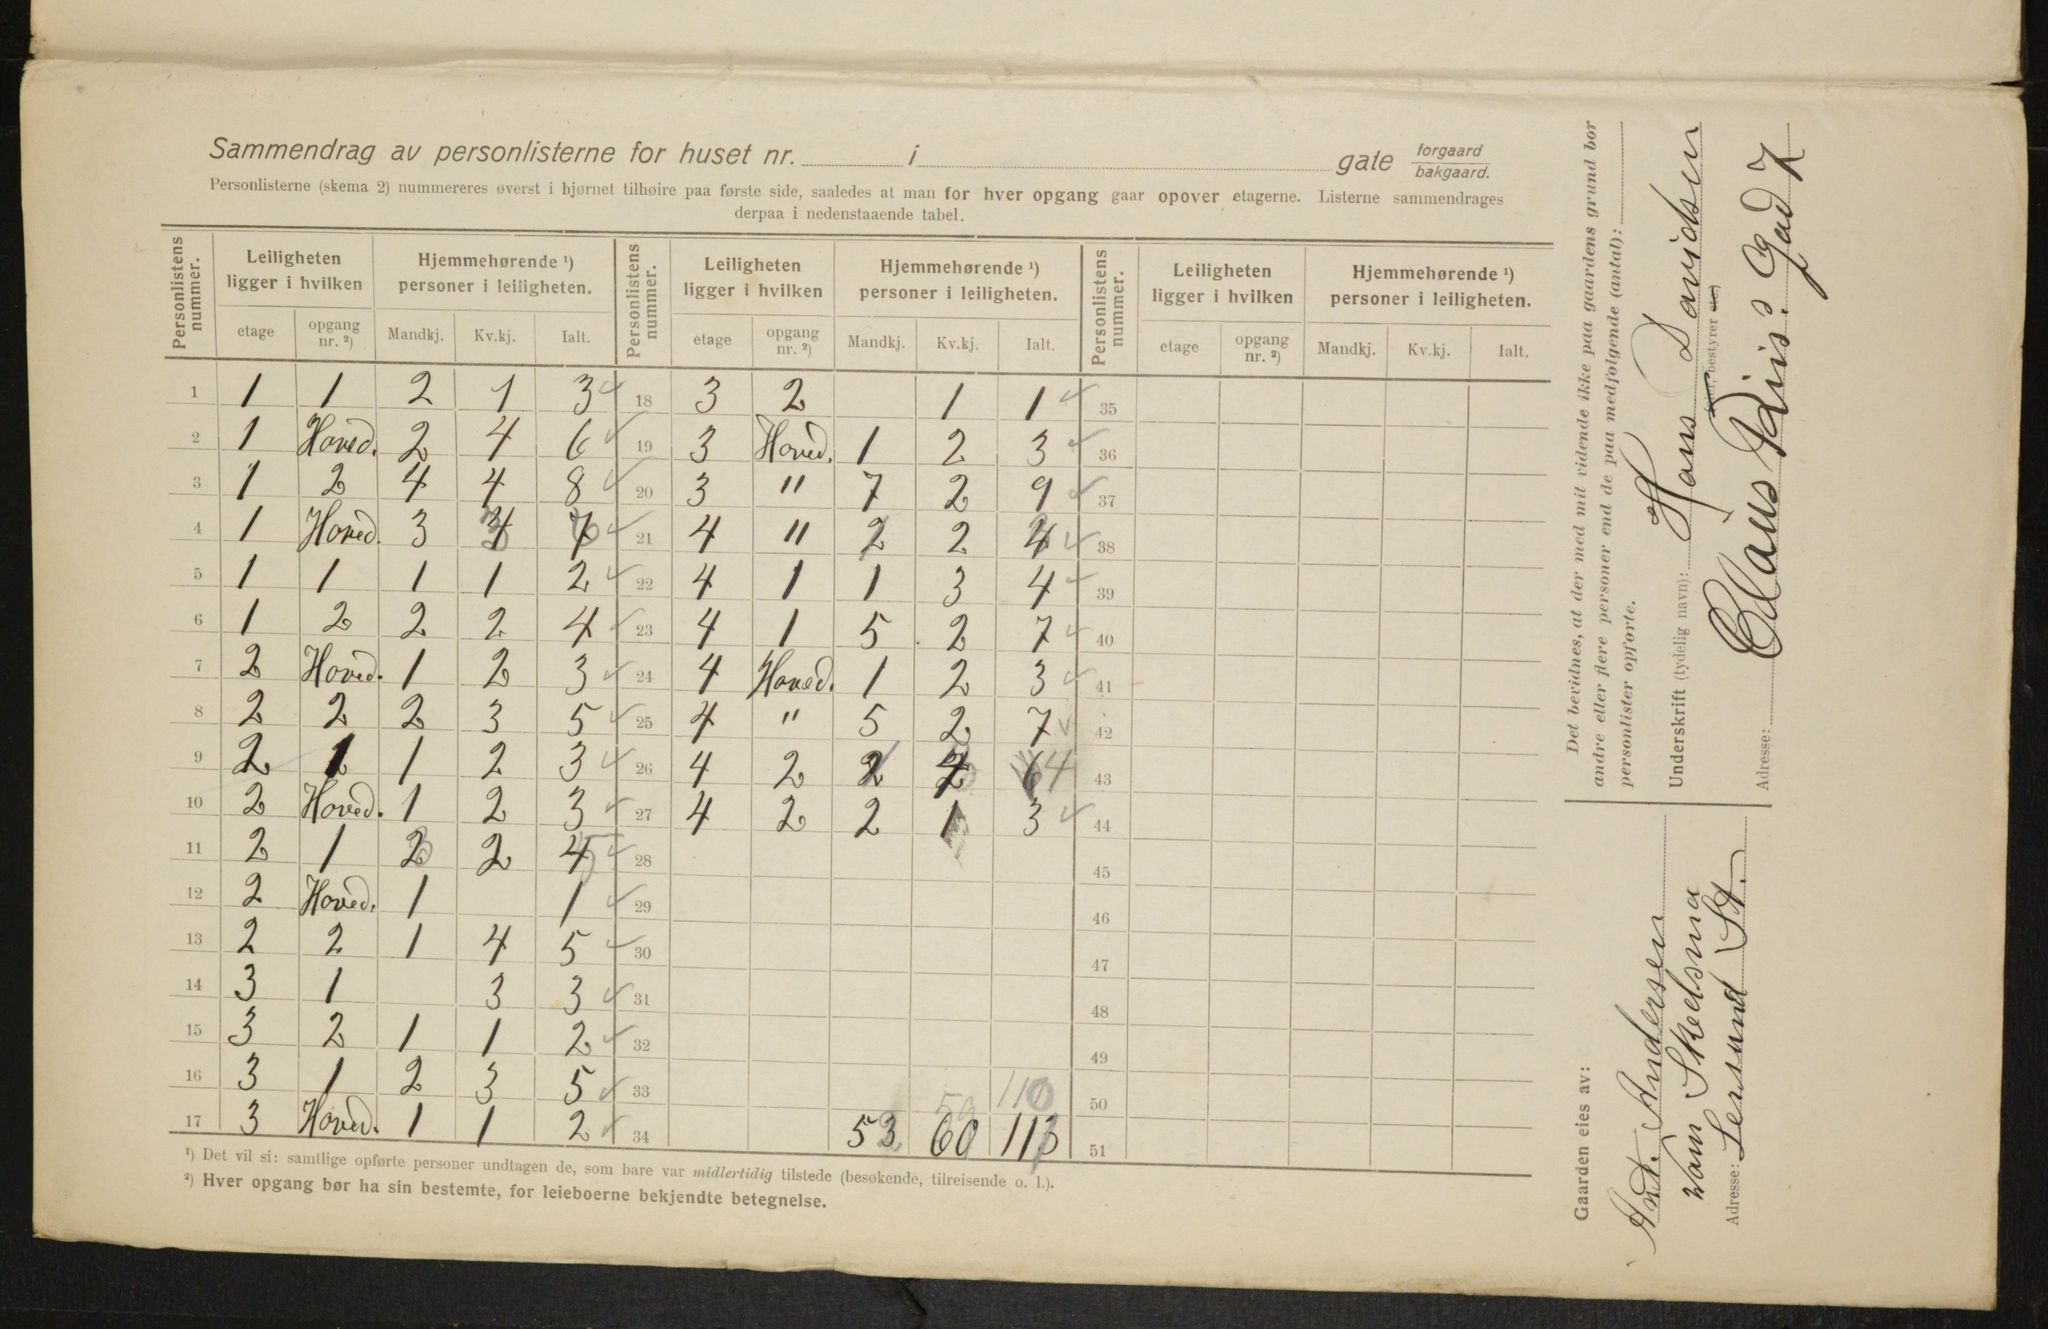 Sammendrag av personlisterne for huset nr. i gate forgaard bakgaard.
Personlisterne (skema 2) nummereres øverst i hjørnet tilhøire paa første side, saaledes at man for hver opgang gaar opover etagerne. Listerne sammendrages
derpaa i nedenstaaende tabel.
Personlistens nummer. Leiligheten ligger i hvilken Hjemmehørende ¹) personer i leiligheten. Personlistens nummer. Leiligheten ligger i hvilken Hjemmehørende ¹) personer i leiligheten. Personlistens nummer. Leiligheten ligger i hvilken Hjemmehørende ¹) personer i leiligheten.
etage opgang nr. ²) Mandkj. Kv.kj. Ialt. etage opgang nr. ²) Mandkj. Kv.kj. Ialt. etage opgang nr. ²) Mandkj. Kv.kj. Ialt.
1 1 1 2 1 3 18 3 2 1 1 35
2 1 Hoved. 2 4 6 19 3 Hoved. 1 2 3 36
3 1 2 4 4 8 20 3 " 7 2 9 37
4 1 Hoved. 3 4 7 21 4 " 2 2 4 38
5 1 1 1 1 2 22 4 1 1 3 4 39
6 1 2 2 2 4 23 4 1 5 2 7 40
7 2 Hoved. 1 2 3 24 4 Hoved. 1 2 3 41
8 2 2 2 3 5 25 4 " 5 2 7 42
9 2 1 1 2 3 26 4 2 2 4 43
10 2 Hoved. 1 2 3 27 4 2 2 1 3 44
11 2 1 2 2 4 28 45
12 2 Hoved. 1 1 29 46
13 2 2 1 4 5 30 47
14 3 1 3 3 31 48
15 3 2 1 1 2 32 49
16 3 1 2 3 5 33 110 50
17 3 Hoved. 1 1 2 34 53 60 113 51
¹) Det vil si: samtlige opførte personer undtagen de, som bare var midlertidig tilstede (besøkende, tilreisende o. l.).
²) Hver opgang bør ha sin bestemte, for leieboerne bekjendte betegnelse.
Det bevidnes, at der med mit vidende ikke paa gaardens grund bor
andre eller flere personer end de paa medfølgende (antal):
personlister opførte.
Underskrift (tydelig navn): Hans Davidsen
bestyrer
Adresse: Claus Riis's Gad 7
Gaarden eies av:
Andersen
Adresse: Lersund St.